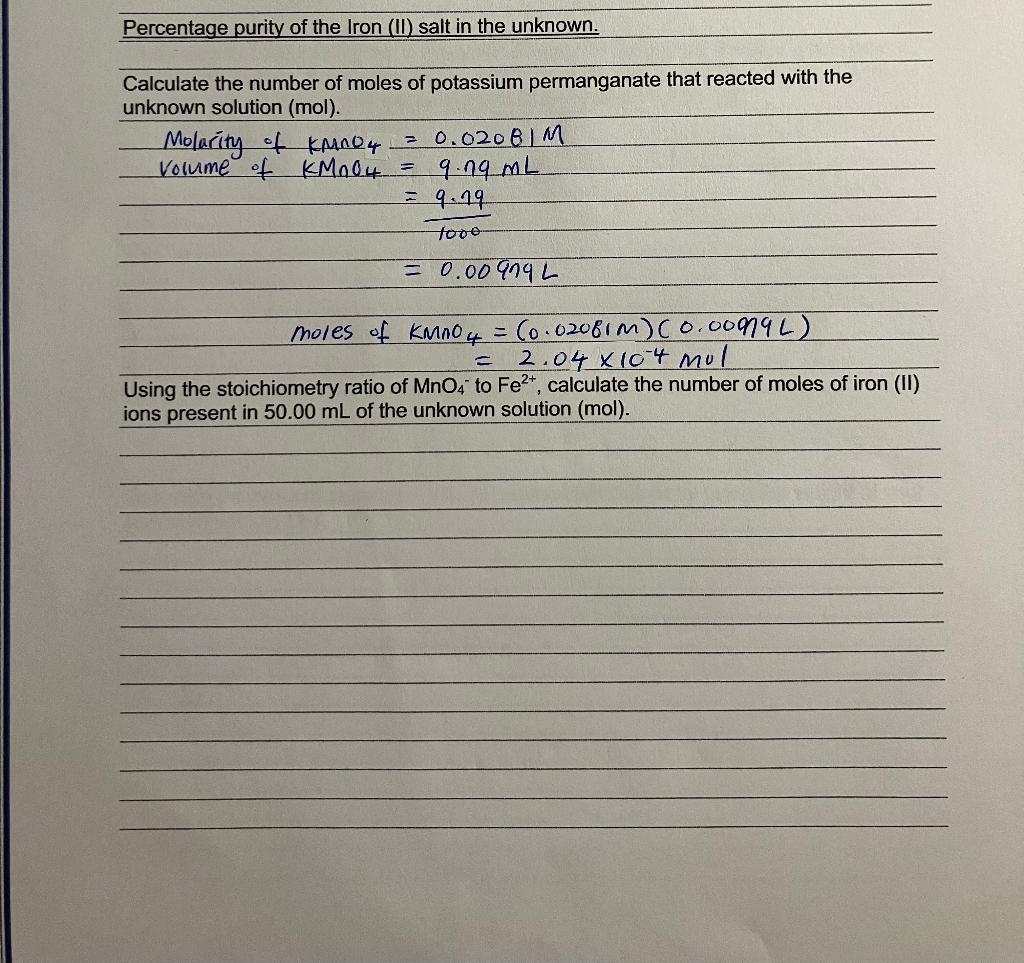 Percentage purity of the Iron (II) salt in the unknown.
Calculate the number of moles of potassium permanganate that reacted with the
unknown solution (mol).
Molarity of KMnO4 = 0.02081M
Volume of KMnO4 = 9.79 mL
= 9.79
1000
= 0.00979 L
moles of KMnO4 = (0.02081M)(0.00979L)
= 2.04 x 10-4 mol
Using the stoichiometry ratio of MnO₄⁻ to Fe²⁺, calculate the number of moles of iron (II)
ions present in 50.00 mL of the unknown solution (mol).